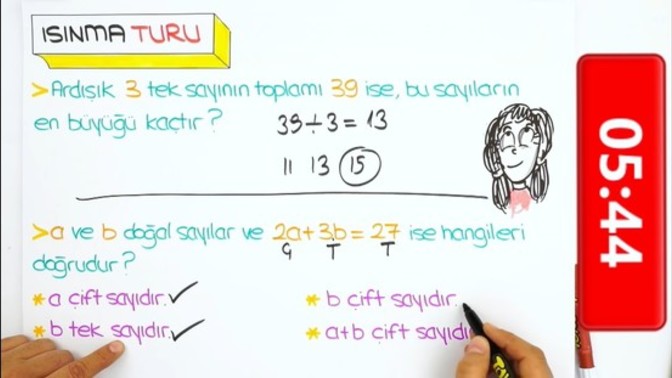 ISINMA TURU
>Ardışık 3 tek sayının toplamı 39 ise, bu sayıların
en büyüğü kaçtır?
39÷3=13
11 13 15
>a ve b doğal sayılar ve 2a+3b=27 ise hangileri
Ç T T
doğrudur?
* a çift sayıdır. ✓
* b çift sayıdır.
* b tek sayıdır. ✓
* a+b çift sayıdı
05:44